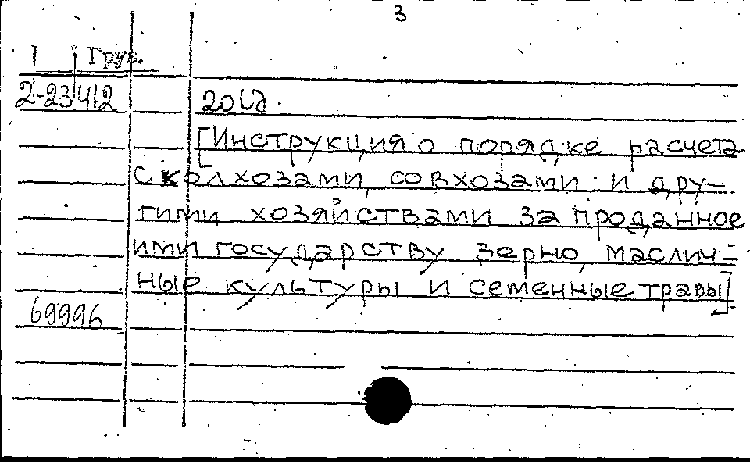 3
1 Груз.
2-23412
20 с.
[Инструкция о порядке расчета
с колхозами, совхозами и дру-
гими хозяйствами за проданное
ими государству зерно, маслич-
ные культуры и семенные травы]
69996